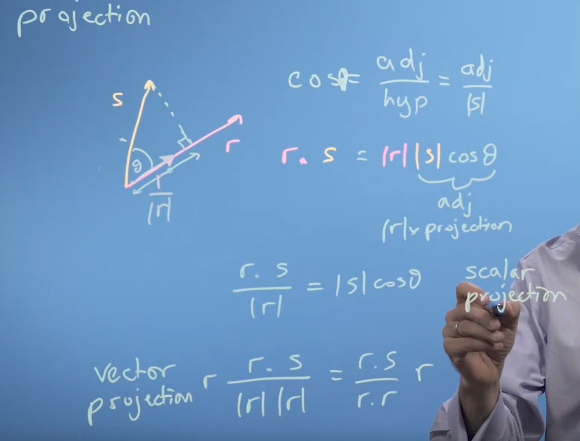 projection
s
θ
r
r
|r|
cosθ = adj/hyp = adj/|s|
r. s = |r||s|cosθ
adj
|r|x projection
r. s/|r| = |s|cosθ
scalar
projection
vector
projection
r r. s/|r||r| = r.s/r.r r